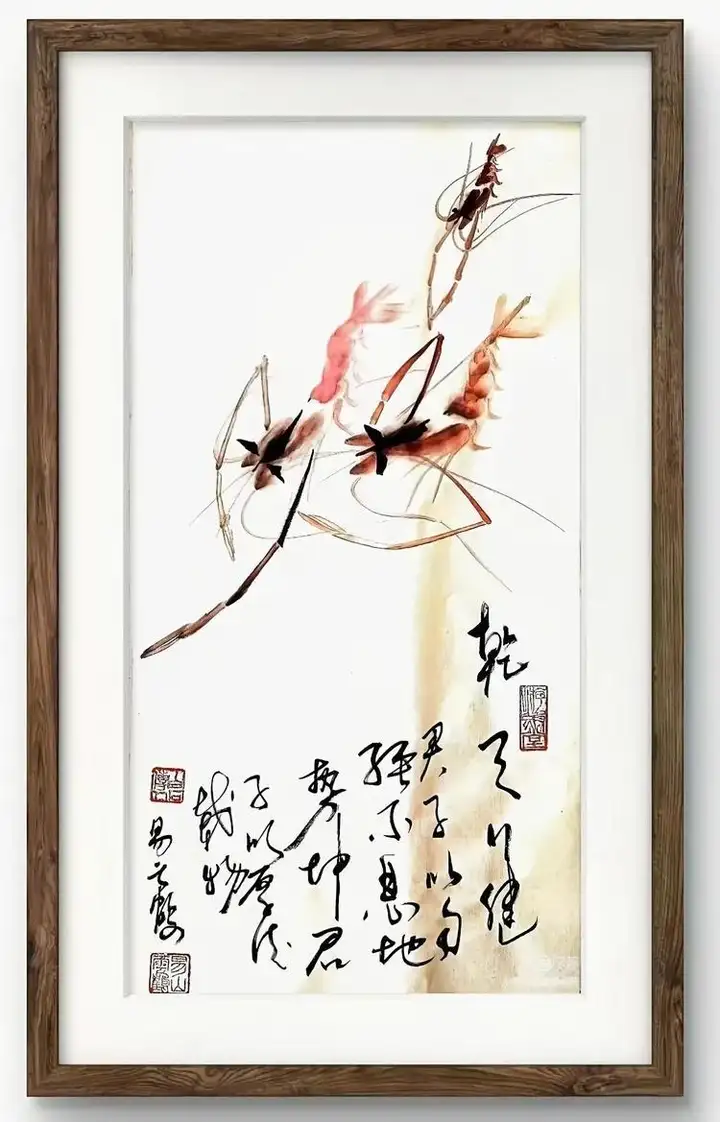 乾
天行健
君子以自
强不息地
势坤君
子以厚德
载物